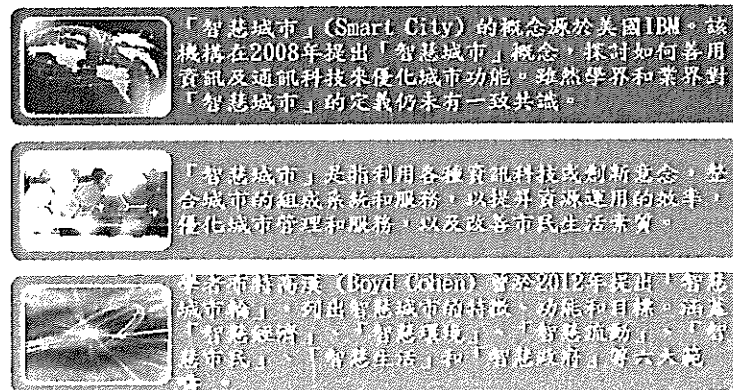 「智慧城市」(Smart City) 的概念源於美國IBM。該
機構在2008年提出「智慧城市」概念，探討如何善用
資訊及通訊科技來優化城市功能。雖然學界和業界對
「智慧城市」的定義仍未有一致共識。
「智慧城市」是指利用各種資訊科技或創新意念，整
合城市的組成系統和服務，以提昇資源運用的效率，
優化城市管理和服務，以及改善市民生活素質。
學者布特高漢 (Boyd Cohen) 曾於2012年提出「智慧
城市輪」，列出智慧城市的特徵、功能和目標。涵蓋
「智慧經濟」、「智慧環境」、「智慧流動」、「智
慧市民」、「智慧生活」和「智慧政府」等六大範